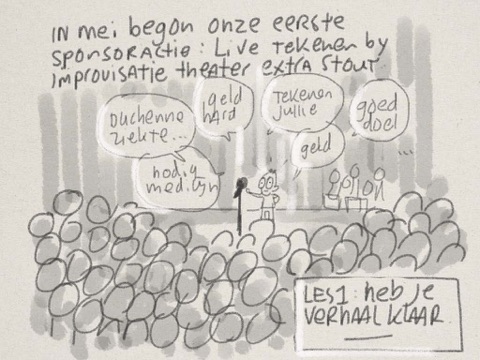 IN mei begon onze eerste
sponsoractie: Live Tekenen by
improvisatie theater extra stout
Duchenne
ziekte...
geld
hard
Tekenen
jullie
goed
doel
nodig
medicyn
geld
...
LES 1: heb je
VERHAAL KLAAR